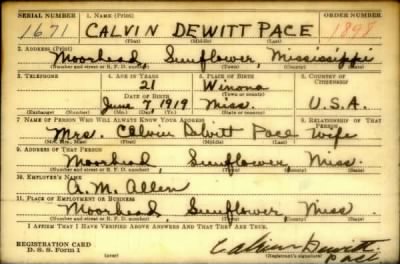 SERIAL NUMBER 1. NAME (Print) ORDER NUMBER
1671 CALVIN DEWITT PACE 1898
(First) (Middle) (Last)
2. ADDRESS (Print)
Moorhead, Sunflower, Mississippi
(Number and street or R. F. D. number) (Town) (County) (State)
3. TELEPHONE 4. AGE IN YEARS 5. PLACE OF BIRTH 6. COUNTRY OF CITIZENSHIP
21 Winona
DATE OF BIRTH (Town or county)
June 7, 1919 Miss. U.S.A.
(Exchange) (Number) (Mo.) (Day) (Yr.) (State or country)
7. NAME OF PERSON WHO WILL ALWAYS KNOW YOUR ADDRESS 8. RELATIONSHIP OF THAT PERSON
Mrs. Calvin Dewitt Pace Wife
(Mr., Mrs., Miss) (First) (Middle) (Last)
9. ADDRESS OF THAT PERSON
Moorhead, Sunflower, Miss.
(Number and street or R. F. D. number) (Town) (County) (State)
10. EMPLOYER'S NAME
A. M. Allen
11. PLACE OF EMPLOYMENT OR BUSINESS
Moorhead, Sunflower, Miss
(Number and street or R. F. D. number) (Town) (County) (State)
I AFFIRM THAT I HAVE VERIFIED ABOVE ANSWERS AND THAT THEY ARE TRUE.
REGISTRATION CARD
D. S. S. Form 1
Calvin Dewitt
Pace
(Registrant's signature)